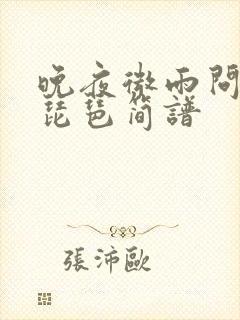 晚夜微雨問
琵琶簡譜
張沛歐